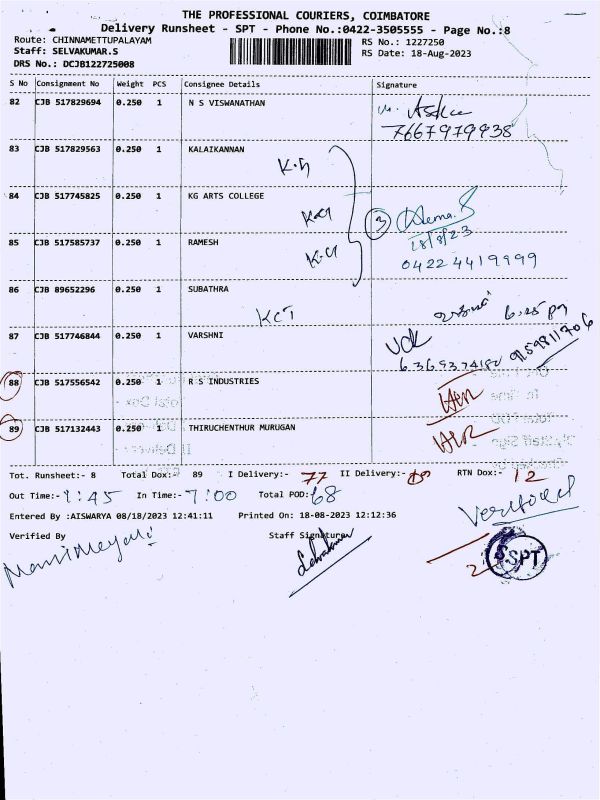 THE PROFESSIONAL COURIERS, COIMBATORE
Delivery Runsheet - SPT - Phone No.:0422-3505555 - Page No.:8
Route: CHINNAMETTUPALAYAM RS No.: 1227250
Staff: SELVAKUMAR.S RS Date: 18-Aug-2023
DRS No.: DCJB122725008
S No Consignment No Weight PCS Consignee Details Signature
82 CJB 517829694 0.250 1 N S VISWANATHAN
7667979938
83 CJB 517829563 0.250 1 KALAIKANNAN
K.G
84 CJB 517745825 0.250 1 KG ARTS COLLEGE
KG 3 Hema.S
18/8/23
85 CJB 517585737 0.250 1 RAMESH
K.G 0422 4419999
86 CJB 89652296 0.250 1 SUBATHRA
KCT
87 CJB 517746844 0.250 1 VARSHNI
88 CJB 517556542 0.250 1 R S INDUSTRIES
89 CJB 517132443 0.250 1 THIRUCHENTHUR MURUGAN
Tot. Runsheet:- 8 Total Dox:- 89 I Delivery:- 77 II Delivery:- RTN Dox:- 12
Out Time:- 1:45 In Time:- 7:00 Total POD: 68
Entered By :AISWARYA 08/18/2023 12:41:11 Printed On: 18-08-2023 12:12:36
Verified By Staff Signature
SPT